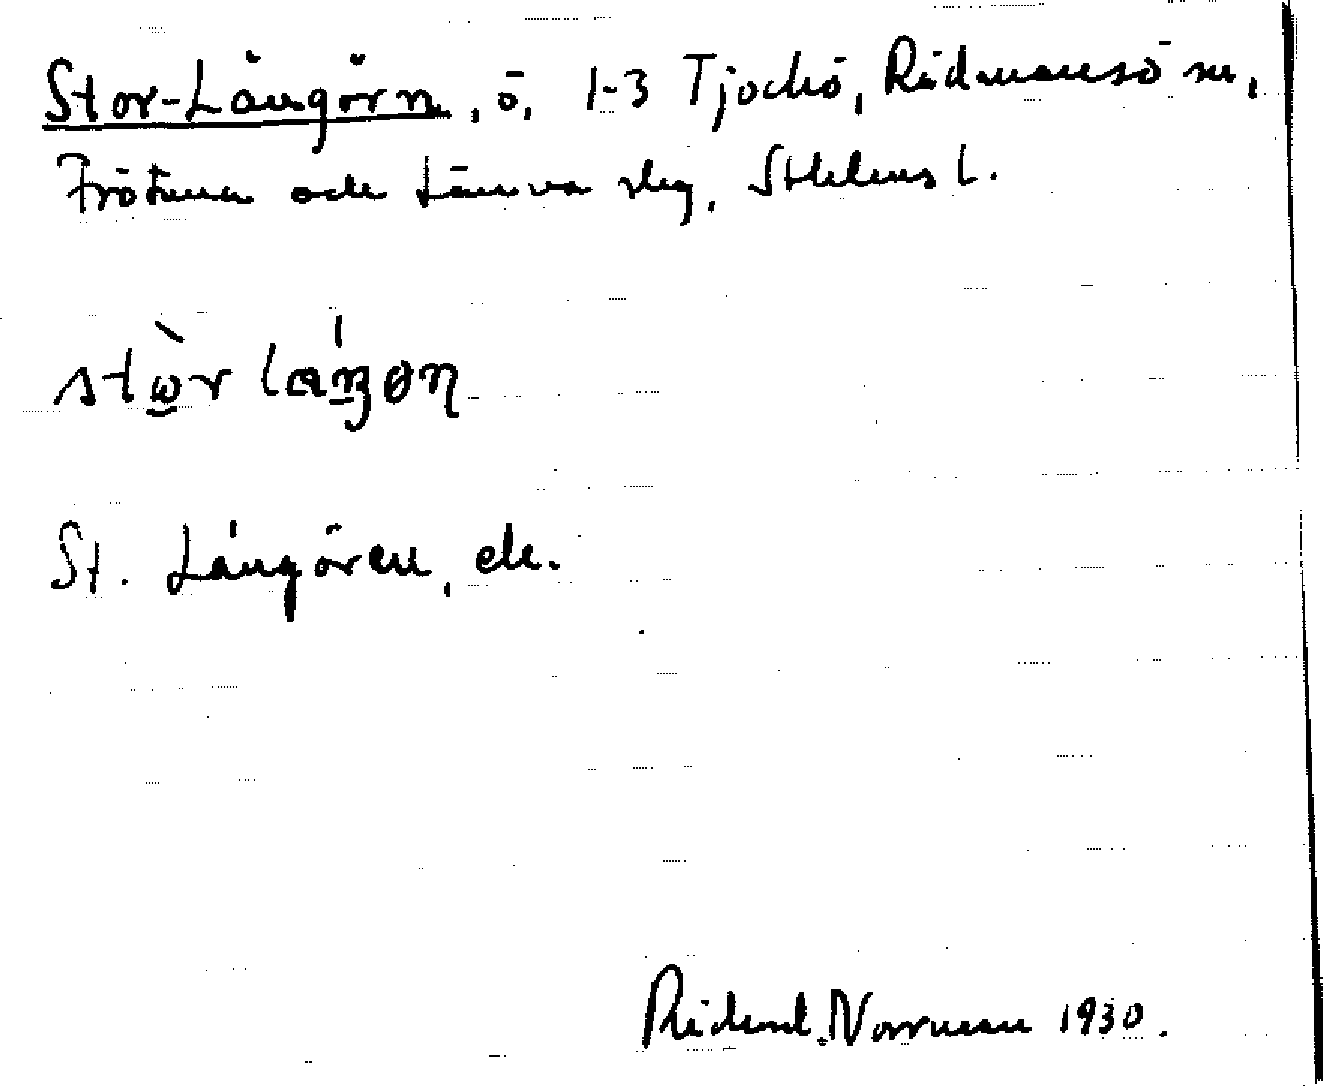 Stor-Långörn, ö, 1-3 Tjockö, Rådmansö sn,
Frötuna och Länna slg, Sthlms l.
stòr láŋøn
St. Långören, ek.
Rickard Norrman 1930.